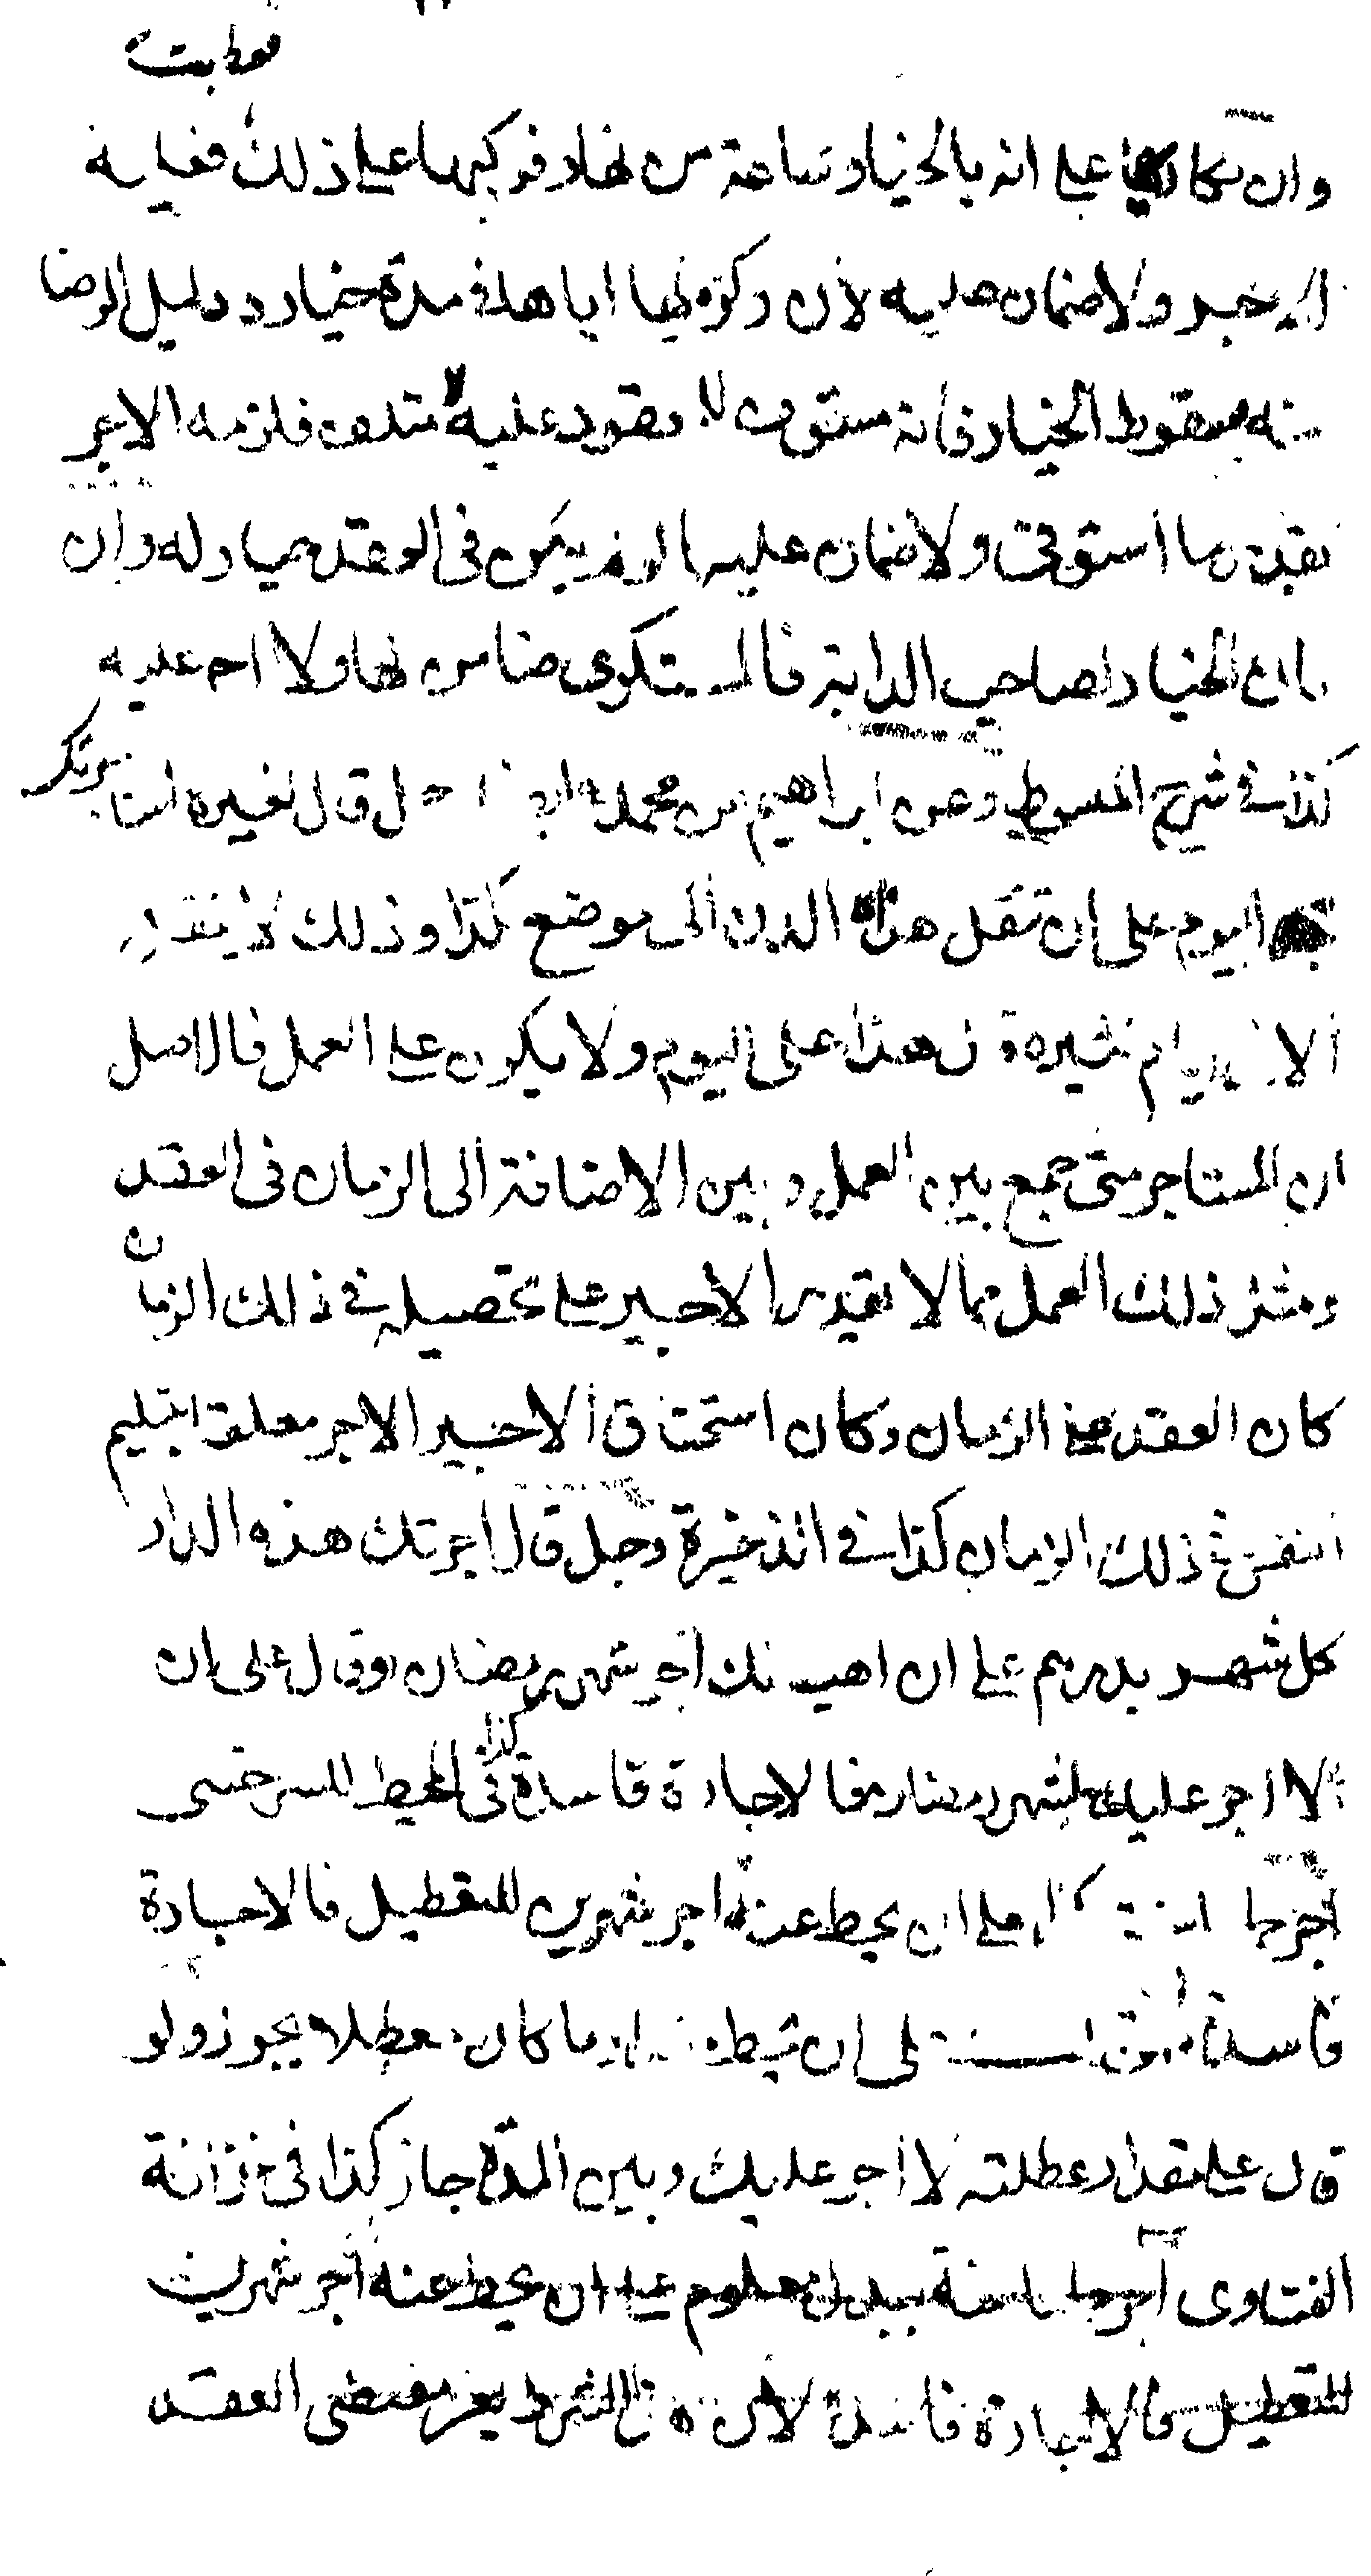 وان تكارى على انه بالخيار ساعة من نهار فركبها على ذلك فعليه
الاجر ولا ضمان عليه لان ركوبه اياها في مدة خياره دليل الرضا
منه بسقوط الخيار فانه مستوف لا معقود عليه متلف فلزمه الاجر
بقدر ما استوفى ولا ضمان عليه لانه في العقد خيار له وان
كان الخيار لصاحب الدابة فالمستكرى ضامن لها ولا اجر عليه
كذا في شرح المبسوط وعن ابراهيم عن محمد قال لغيره استاجرتك
اليوم على ان تنقل هذا الى موضع كذا وذلك لا ينقل
الا ايام كثيرة هذا على اليوم ولا يكون على العمل فالاصل
ان المستاجر متى جمع بين العمل وبين الاضافة الى الزمان في العقد
ومثل ذلك العمل مما لا يقدر الاجير على تحصيله في ذلك الزمان
كان العقد على الزمان وكان استحقاق الاجير الاجر معلقا بتسليم
النفس في ذلك الزمان كذا في الذخيرة رجل قال اجرتك هذه الدار
كل شهر بدرهم على ان اهب لك اجر شهر رمضان او قال على ان
لا اجر عليك لشهر رمضان فالاجارة فاسدة كذا في المحيط للسرخسي
على ان يحط عنه اجر شهرين للتعطيل فالاجارة
فاسدة على ان يحط ما كان معطلا يجوز ولو
قال على مقدار عطلته لا اجر عليك وبين المدة جاز كذا في خزانة
الفتاوى اجر حماما سنة ببدل معلوم على ان يحط عنه اجر شهرين
للتعطيل فالاجارة فاسدة لان هذا الشرط يغير مقتضى العقد